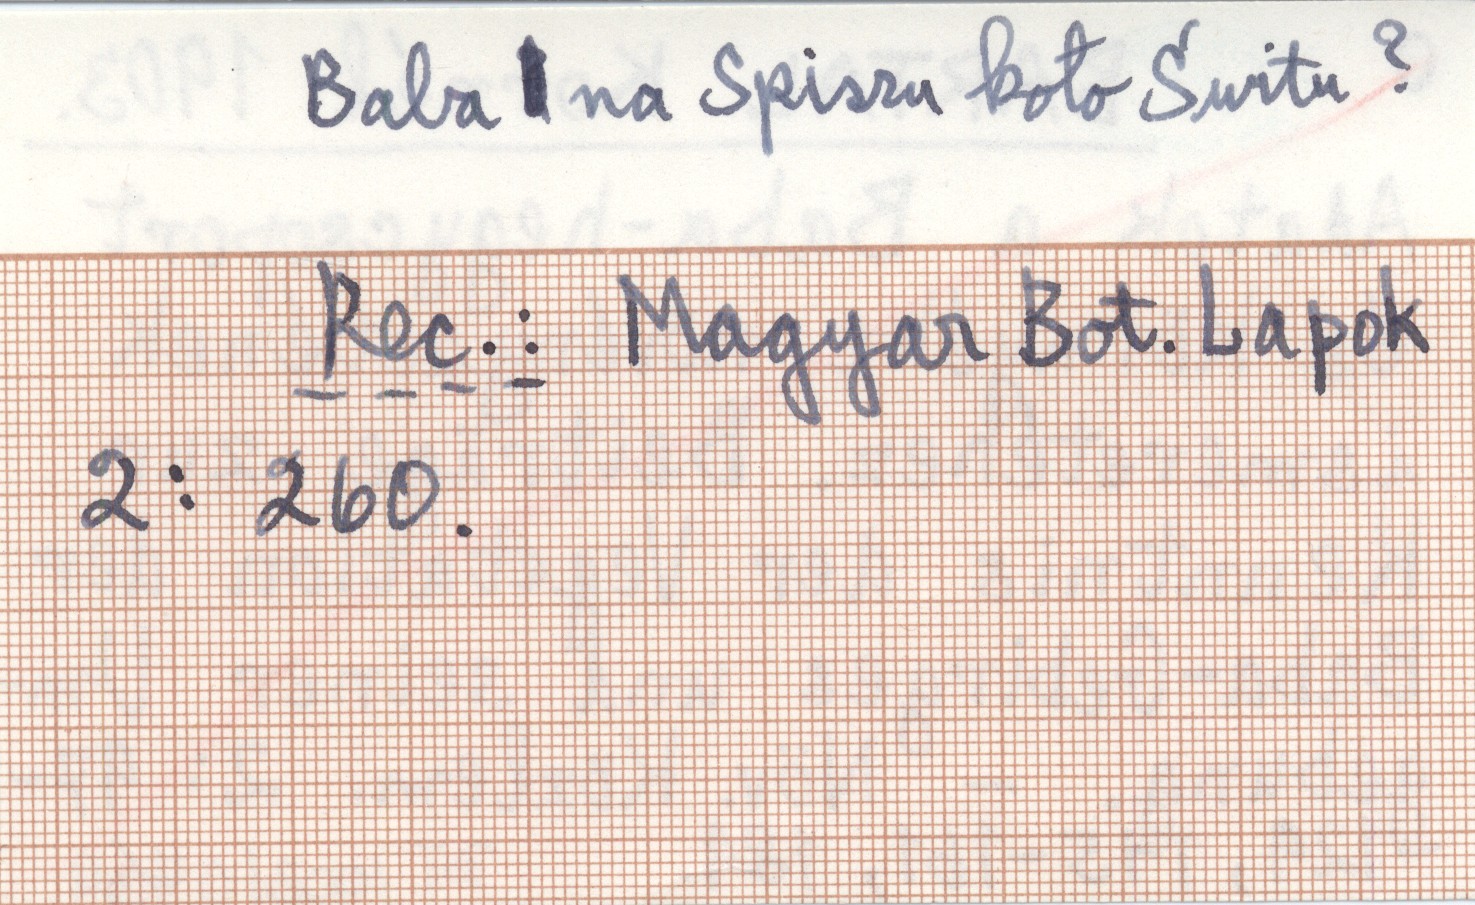 Baba na Spiszu koło Świtu?
Rec.: Magyar Bot. Lapok
2: 260.